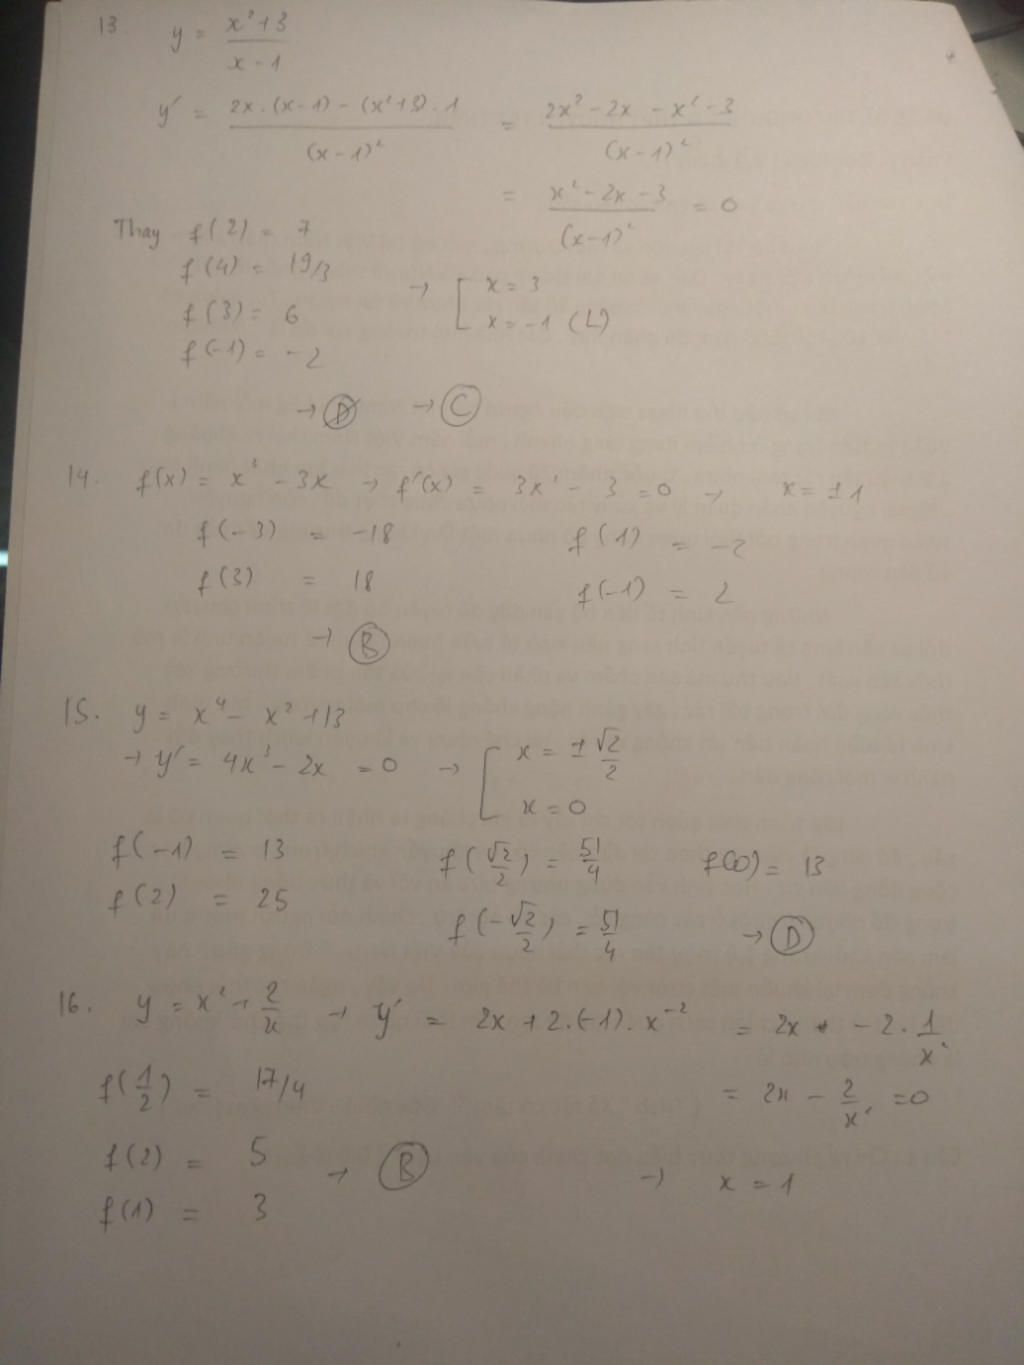 13. y = x²+3 / x-1
y' = 2x.(x-1) - (x²+3).1 / (x-1)² = 2x² - 2x - x² - 3 / (x-1)²
= x² - 2x - 3 / (x-1)² = 0
Thay f(2) = 7
f(4) = 19/3
f(3) = 6
f(-1) = -2
→ [ x = 3
x = -1 (L)
→ D → C
14. f(x) = x³ - 3x → f'(x) = 3x² - 3 = 0 → x = ±1
f(-3) = -18 f(1) = -2
f(3) = 18 f(-1) = 2
→ B
15. y = x⁴ - x² + 13
→ y' = 4x³ - 2x = 0 → [ x = ± √2/2
x = 0
f(-1) = 13 f(√2/2) = 51/4 f(0) = 13
f(2) = 25 f(-√2/2) = 51/4 → D
16. y = x² + 2/x → y' = 2x + 2.(-1).x⁻² = 2x + -2.1/x²
f(1/2) = 17/4 = 2x - 2/x² = 0
f(2) = 5 → B → x = 1
f(1) = 3